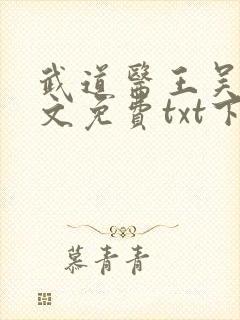 武道醫王吴
文免費txt下
慕青青